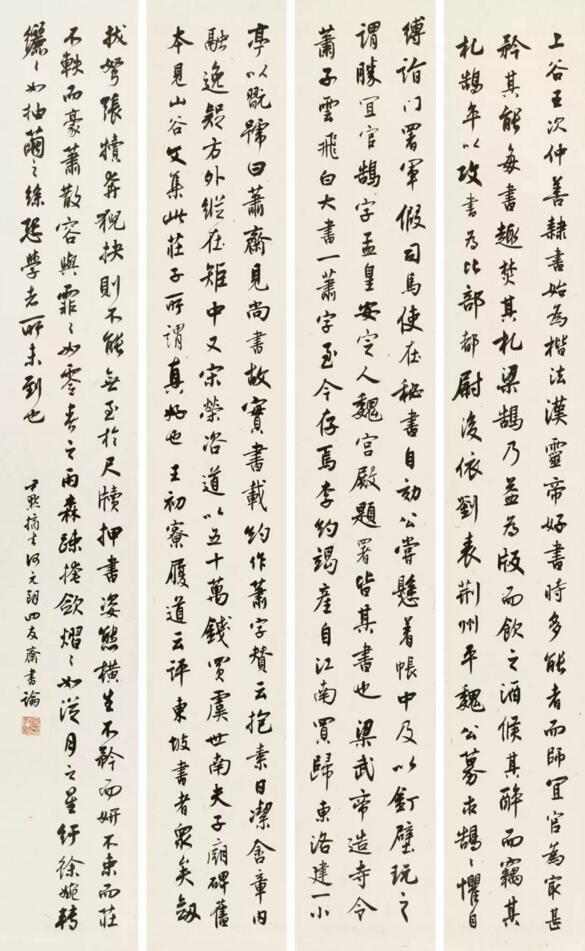 上谷王次仲善隸書始為楷法漢靈帝好書時多能者而師宜官為最甚
矜其能每書趣焚其札梁鵠乃益為版而飲之酒候其醉而竊其
札鵠卒以攻書為比部都尉後依劉表荆州平魏公募求鵠鵠懼自
縛詣门署軍假司馬使在秘書自効公嘗懸着帳中及以釘壁玩之
謂勝宜官鵠字孟皇安定人魏宮殿題署皆其書也梁武帝造寺令
蕭子雲飛白大書一蕭字至今存焉李約竭産自江南買歸東洛建一小
亭以翫號曰蕭齋見尚書故實書載約作蕭字賛云抱素日潔含章内
融逸疑方外縱在矩中又宋榮咨道以五十萬錢買虞世南夫子廟碑舊
本見山谷文集此莊子所謂真好也王初寮履道云評東坡書者衆矣劔
拔弩張犢奔猊抉則不能無至於尺牘押書姿態横生不矜而妍不束而莊
不軼而豪蕭散容與霏霏如零春之雨森疎掩斂熠熠如從月之星紆徐婉轉
纚纚如抽繭之絲恐學者所未到也
尹默摘書何元朗四友齋書論